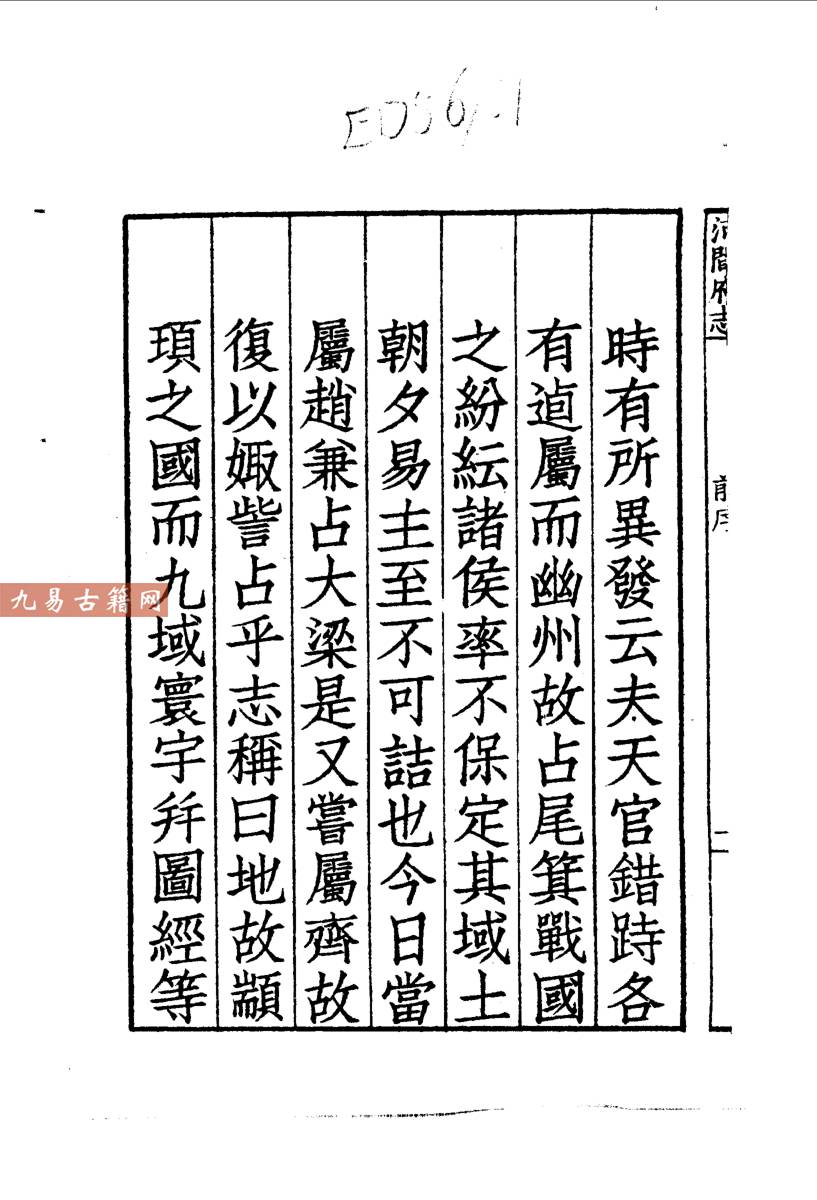 ED56/.1
河間府志
前序
二
時有所異發云夫天官錯跱各
有逌屬而幽州故占尾箕戰國
之紛紜諸侯率不保定其域土
朝夕易主至不可詰也今日當
屬趙兼占大梁是又嘗屬齊故
復以娵訾占乎志稱曰地故顓
頊之國而九域寰宇幷圖經等
九易古籍网